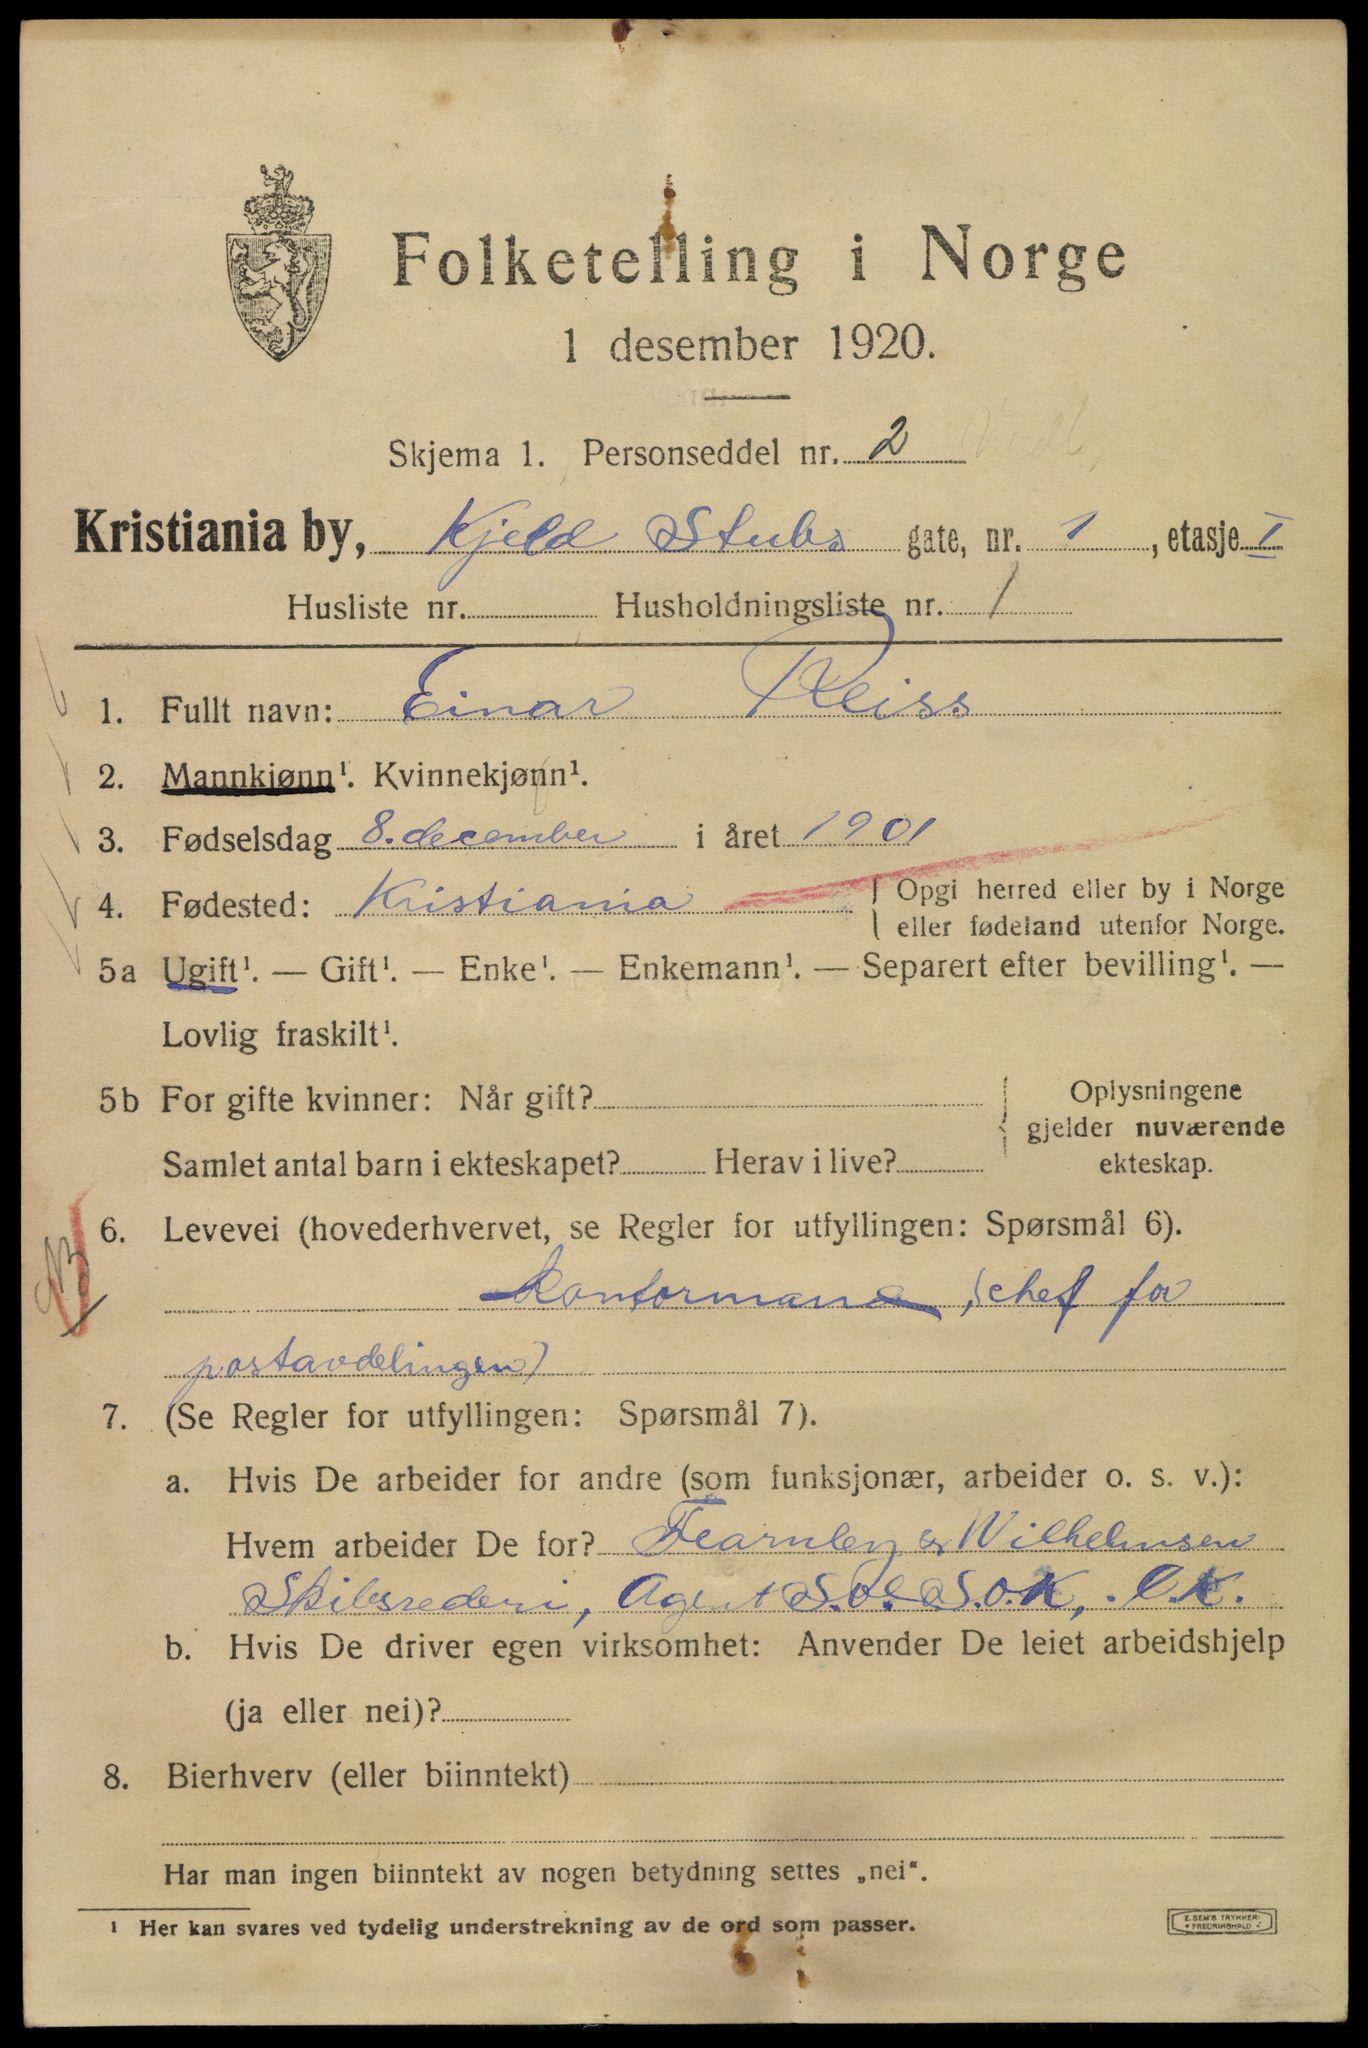 Folketelling i Norge
1 desember 1920.
Skjema 1. Personseddel nr. 2
Kristiania by, Kjeld Stubs gate, nr. 1, etasje I
Husliste nr. Husholdningsliste nr. 1
1. Fullt navn: Einar Reiss
2. Mannkjønn¹. Kvinnekjønn¹.
3. Fødselsdag 8. december i året 1901
4. Fødested: Kristiania { Opgi herred eller by i Norge
eller fødeland utenfor Norge.
5a Ugift¹. — Gift¹. — Enke¹. — Enkemann¹. — Separert efter bevilling¹. —
Lovlig fraskilt¹.
5b For gifte kvinner: Når gift? { Oplysningene
gjelder nuværende
Samlet antal barn i ekteskapet? Herav i live? ekteskap.
6. Levevei (hovederhvervet, se Regler for utfyllingen: Spørsmål 6).
Kontormann (chef for
postavdelingen)
7. (Se Regler for utfyllingen: Spørsmål 7).
a. Hvis De arbeider for andre (som funksjonær, arbeider o. s. v.):
Hvem arbeider De for? Fearnley & Wilhelmsen
Skibsrederi, Agent S.o.S.o.K, .C.K.
b. Hvis De driver egen virksomhet: Anvender De leiet arbeidshjelp
(ja eller nei)?
8. Bierhverv (eller biinntekt)
Har man ingen biinntekt av nogen betydning settes „nei“.
¹ Her kan svares ved tydelig understrekning av de ord som passer.
E. SEM'S TRYKKERI
FREDRIKSHALD